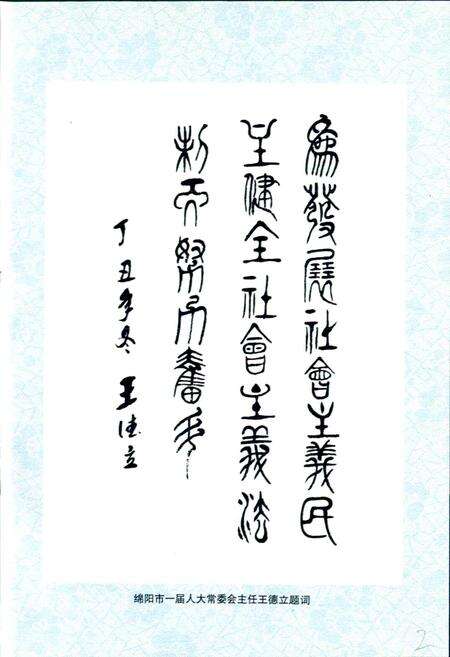 為發展社會主義民
主健全社會主義法
制而努力奮鬥
丁丑年冬 王德立
绵阳市一届人大常委会主任王德立题词
2